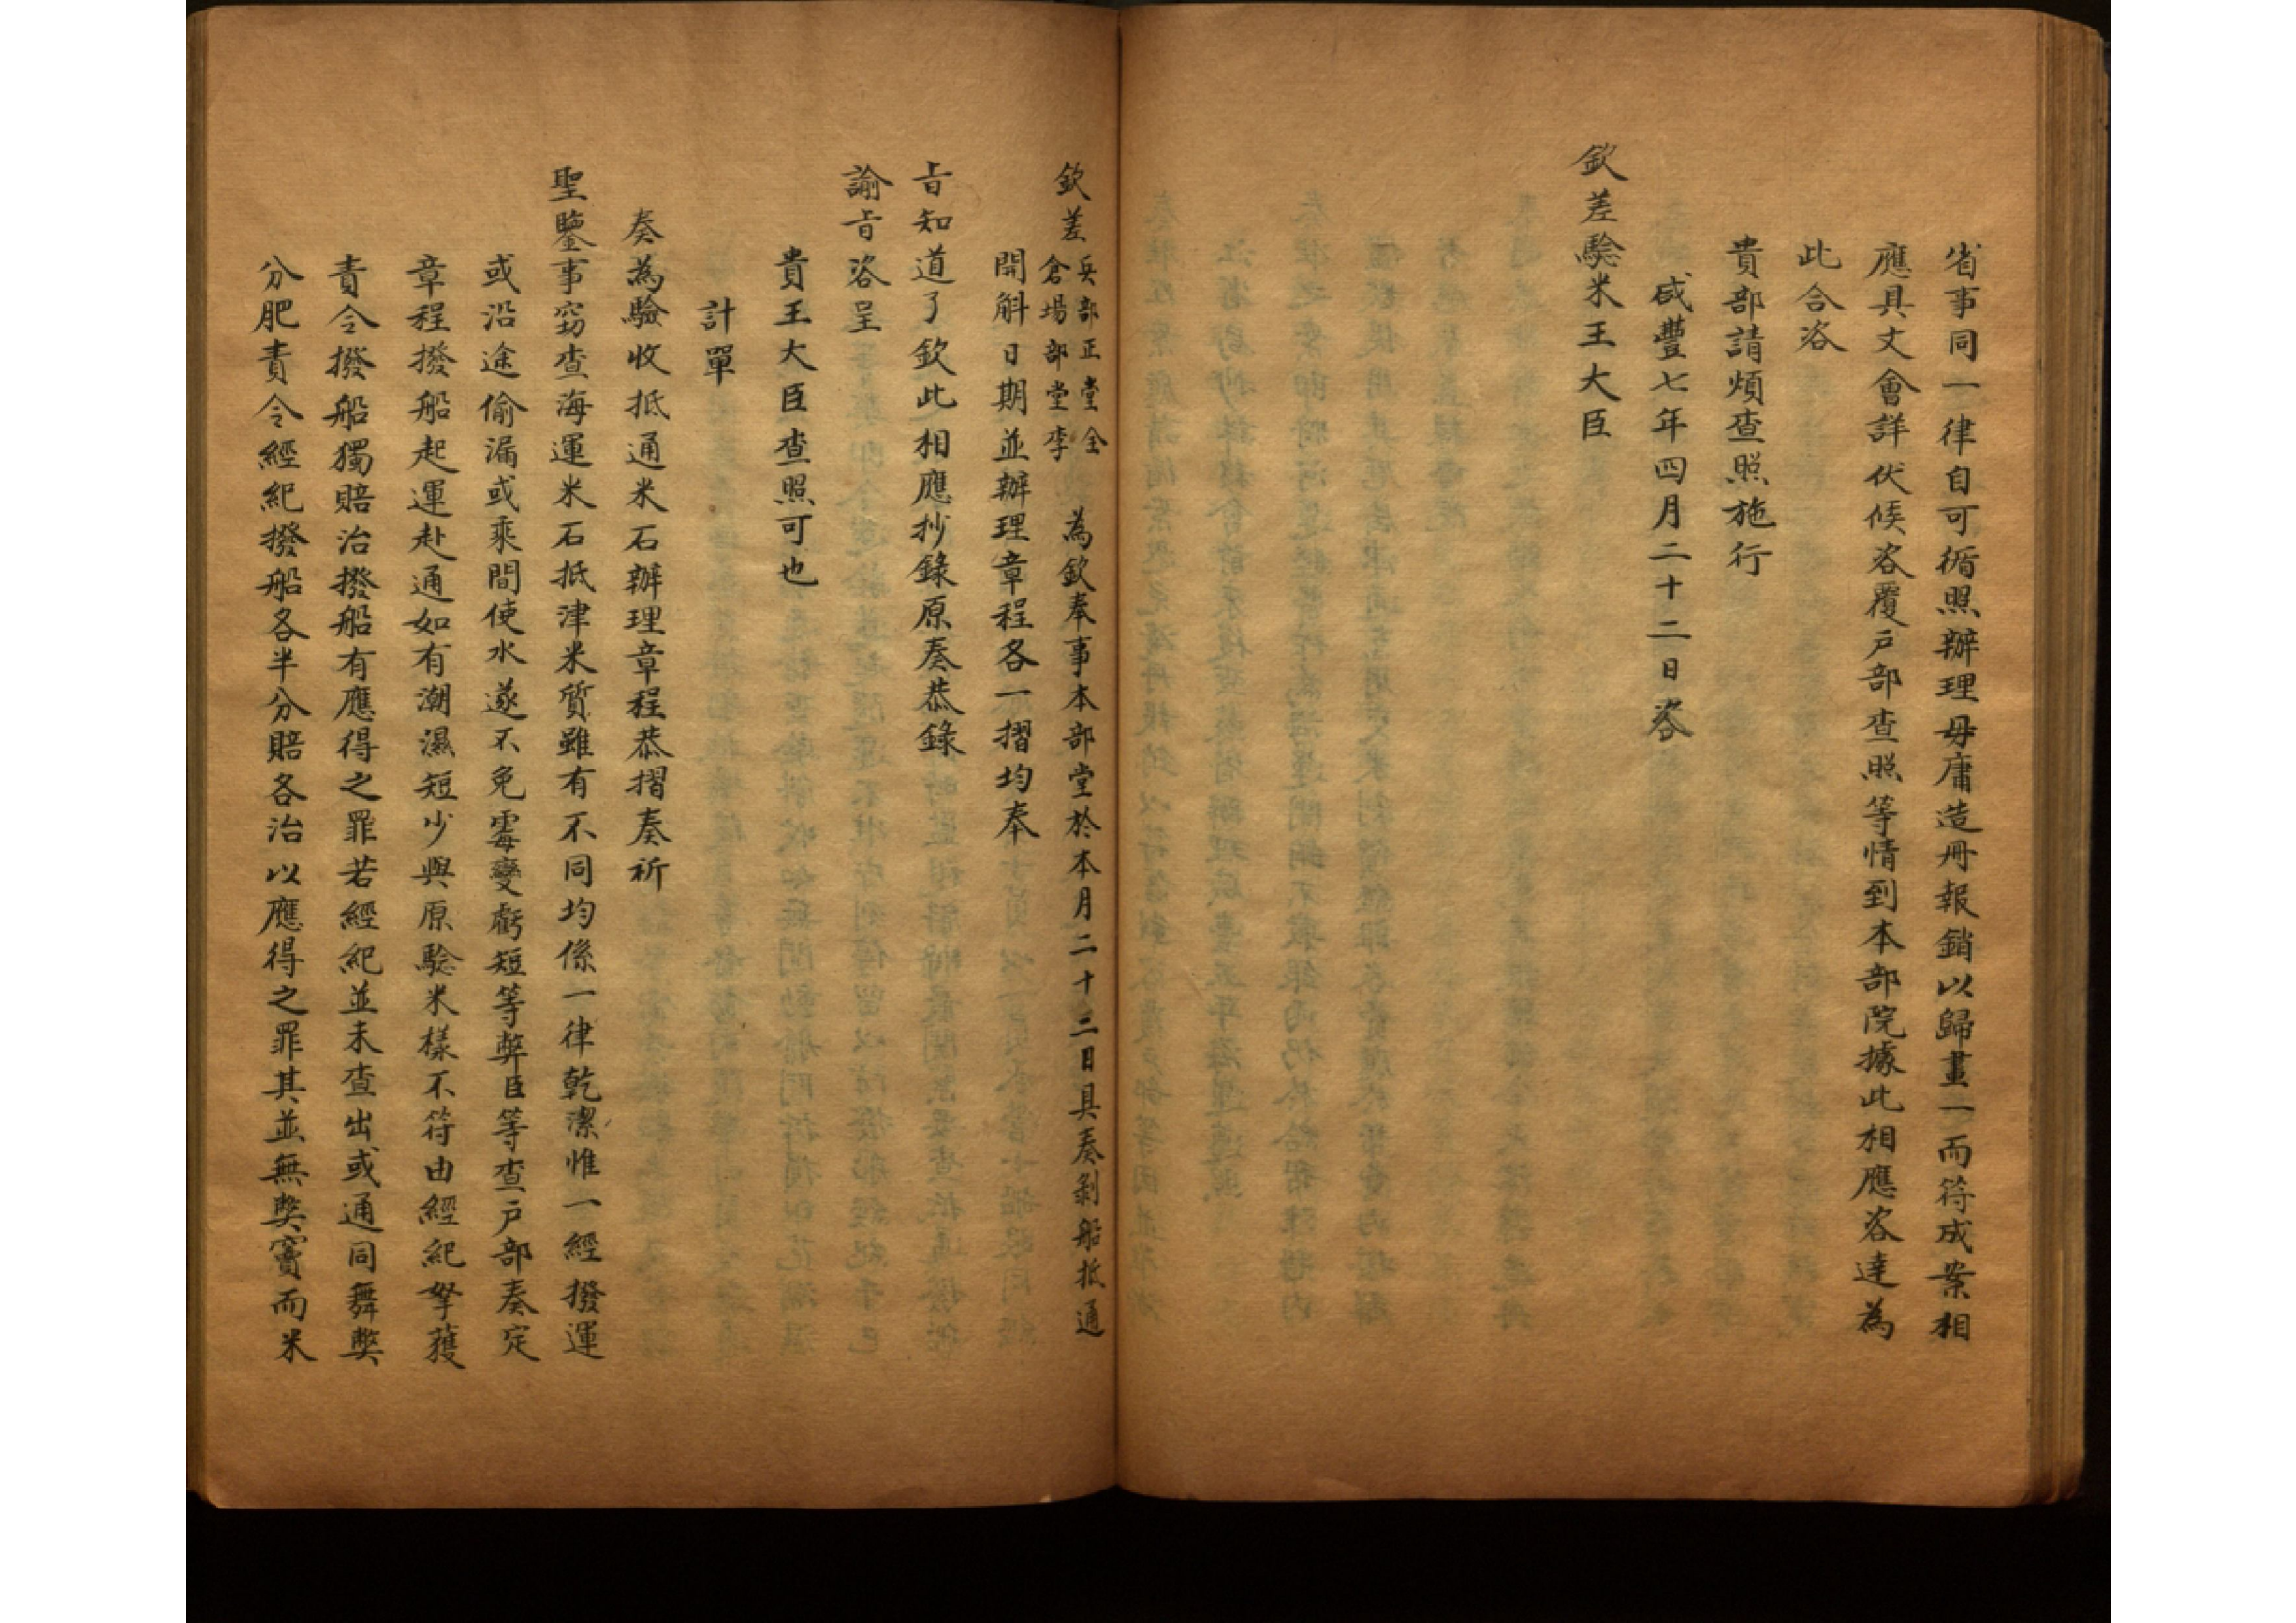 省事同一律自可循照辦理毋庸造册報銷以歸畫一而符成案相
應具文會詳伏候咨覆戶部查照等情到本部院據此相應咨達為
此合咨
貴部請煩查照施行
咸豐七年四月二十二日咨
欽差驗米王大臣
欽差兵部正堂全
倉場部堂李
為欽奉事本部堂於本月二十二日具奏剝船抵通
開斛日期並辦理章程各一摺均奉
旨知道了欽此相應抄錄原奏恭錄
諭旨咨呈
貴王大臣查照可也
計單
奏為驗收抵通米石辦理章程恭摺奏祈
聖鑒事竊查海運米石抵津米質雖有不同均係一律乾潔惟一經撥運
或沿途偷漏或乘間使水遂不免霉變虧短等弊臣等查戶部奏定
章程撥船起運赴通如有潮濕短少與原驗米樣不符由經紀拏獲
責令撥船獨賠治撥船有應得之罪若經紀並未查出或通同舞弊
分肥責令經紀撥船各半分賠各治以應得之罪其並無弊竇而米